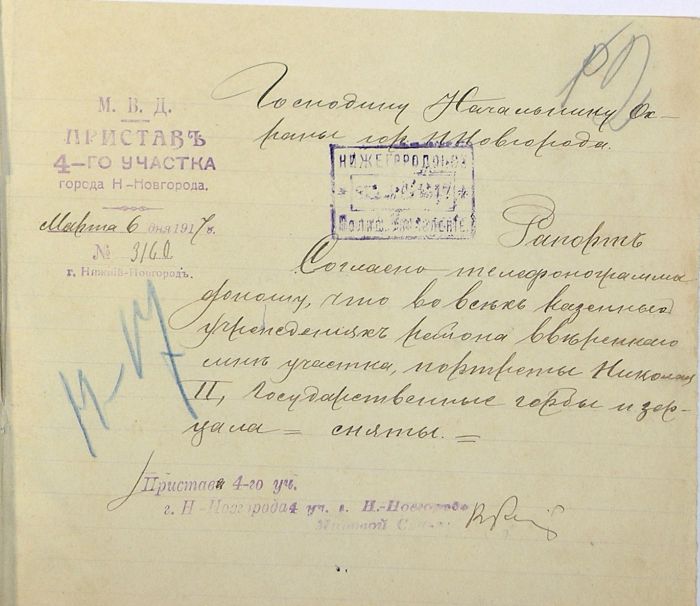 М. В. Д.
ПРИСТАВЪ
4-ГО УЧАСТКА
города Н-Новгорода.
Марта 6 дня 1917 г.
№ 3160
г. Нижнiй-Новгородъ.
Господину Начальнику Ох-
раны гор. Н Новгорода.
НИЖЕГОРОДСКОЕ
Рапортъ
Согласно телефонограммы
доношу, что во всѣхъ казенных
учрежденiяхъ района ввѣреннаго
мнѣ участка, портреты Николая
II, Государственные гербы и зер-
цала = сняты. =
Пристав 4-го уч.
г. Н-Новгорода 4 уч. г. Н.-Новгорода